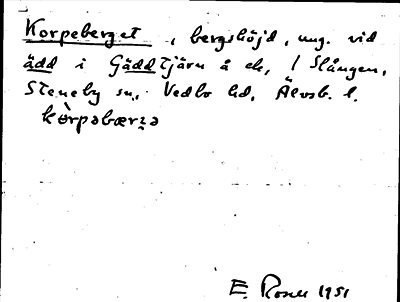 Korpeberget, bergshöjd, ung. vid
ädd i Gäddtjärn å ek, l Slången,
Steneby sn, Vedbo hd, Älvsb. l.
kòrpəbærʒə
E. Rosell 1951